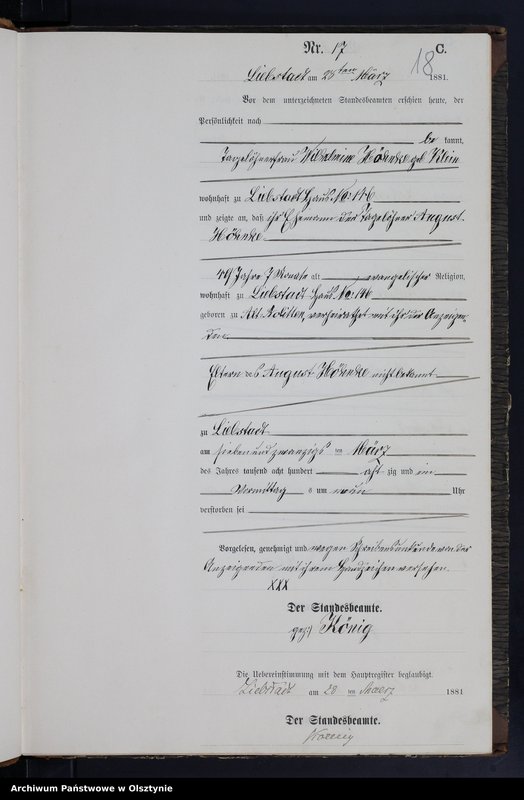 Nr. 17 C.
18
Liebstadt am 28 ten März 1881.
Vor dem unterzeichneten Standesbeamten erschien heute, der
Persönlichkeit nach
be kannt,
Tagelöhnerfrau Wilhelmine Höhnke geb. Klein
wohnhaft zu Liebstadt Haus No: 146
und zeigte an, daß ihr Ehemann der Tagelöhner August
Höhnke
49 Jahre 7 Monate alt, evangelischer Religion,
wohnhaft zu Liebstadt Haus No: 146
geboren zu Alt Bolitten, verheirathet mit ihr der Anzeigen-
den
Eltern des August Höhnke nicht bekannt
zu Liebstadt
am sieben und zwanzigs ten März
des Jahres tausend acht hundert acht zig und ein
Vormittag s um neun Uhr
verstorben sei
Vorgelesen, genehmigt und wegen Schreibensunkunde von der
Anzeigenden mit ihrem Handzeichen versehen.
XXX
Der Standesbeamte.
gez: König
Die Uebereinstimmung mit dem Hauptregister beglaubigt.
Liebstadt am 28 ten Maerz 1881
Der Standesbeamte.
Koenig
Archiwum Państwowe w Olsztynie